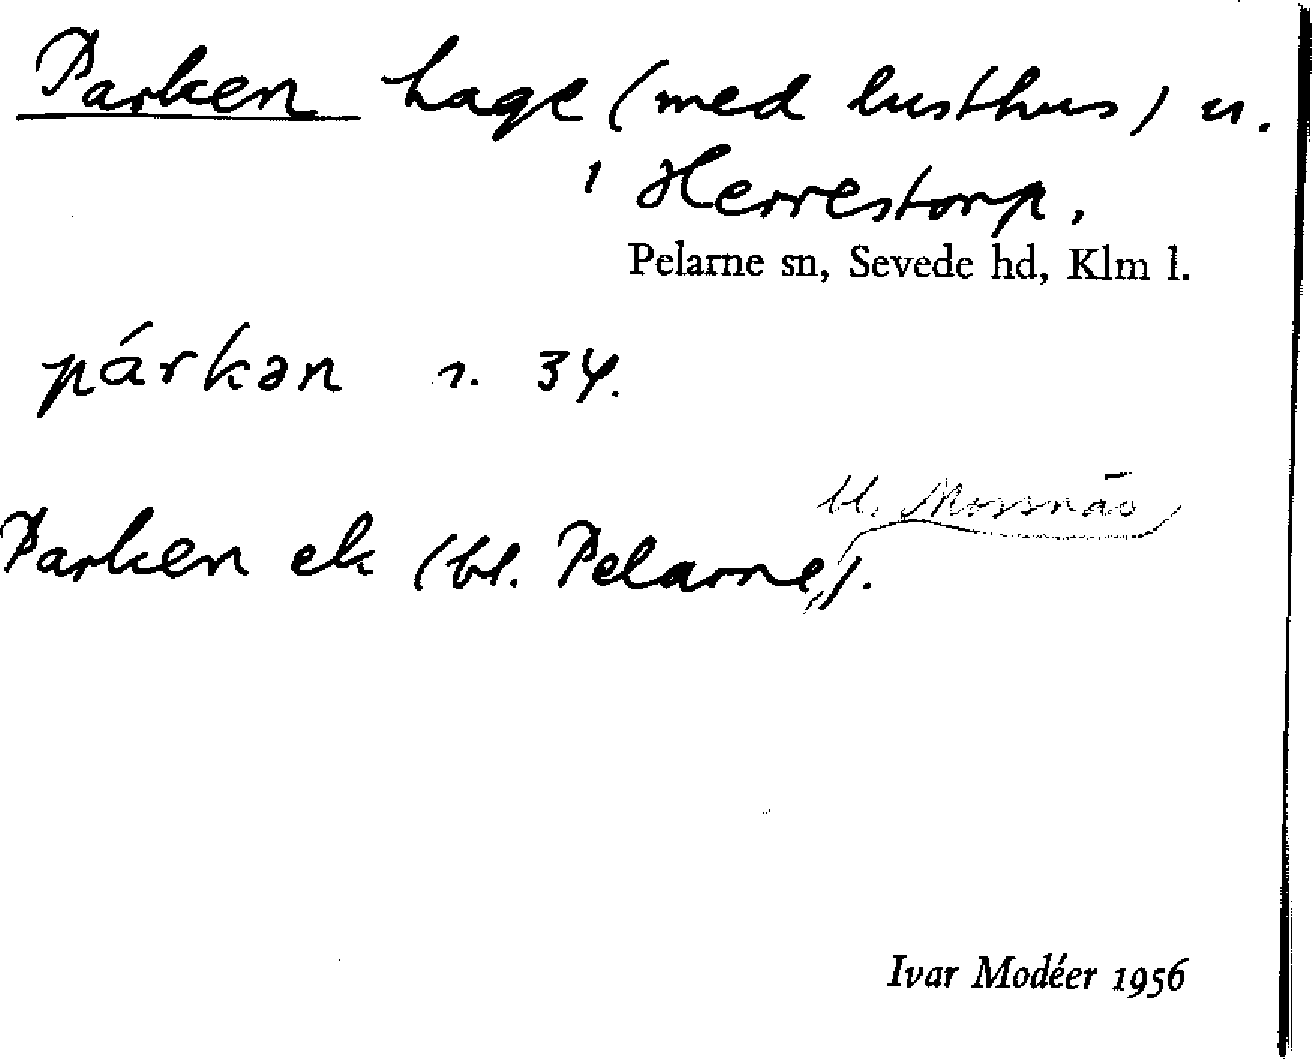 Parken hage (med lusthus) u.
i Herrestorp.
Pelarne sn, Sevede hd, Klm l.
párkən s. 34.
bl. Mossnäs
Parken ek (bl. Pelarne,).
Ivar Modéer 1956